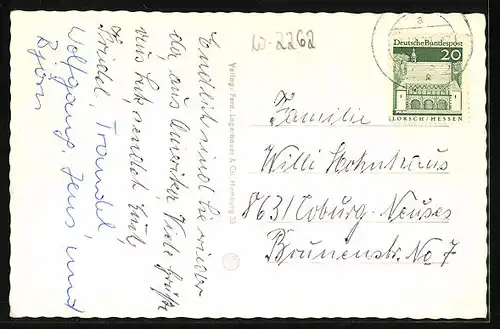 W-2262
a
Deutsche Bundespost
20
LORSCH/HESSEN
Familie
Willi Hohnhaus
8631 Coburg-Neuses
Brunnenstr. No 7
Verlag: Ferd. Lagerbauer & Co. Hamburg 33
Endlich sind Sie wieder
da aus Amerika, Viele Grüße
von
sendet Euch
Friedel, Traudel,
Wolfgang, Jens, und
Björn